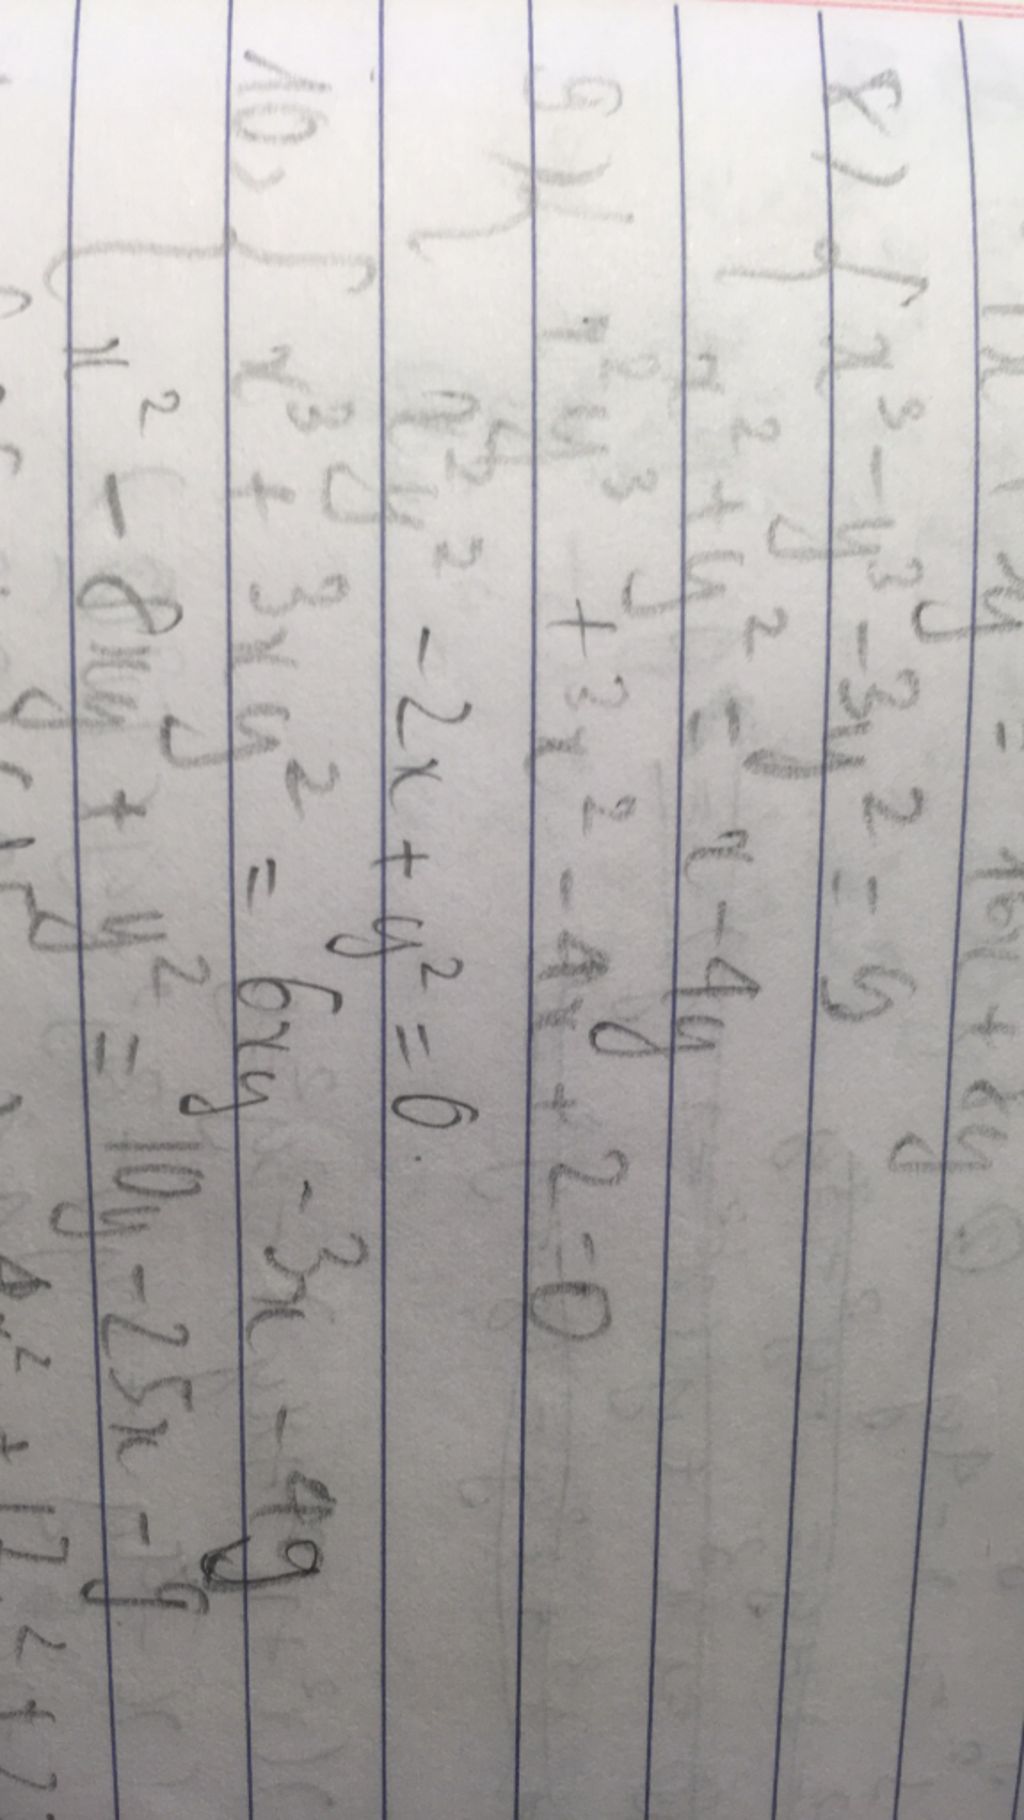 8) { x³ - y³ - 3y² = 9
x² + y² = x - 4y
9) { x²y³ + 3x² - 4x + 2 = 0
x²y² - 2x + y² = 0.
10) { x³ + 3xy² = 6xy - 3x - 49
x² - 8xy + y² = 10y - 25x - 9